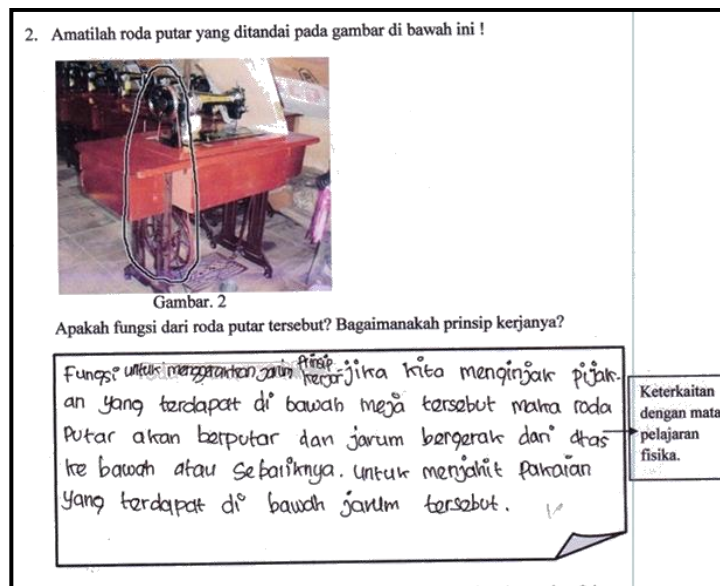 2. Amatilah roda putar yang ditandai pada gambar di bawah ini !
Gambar. 2
Apakah fungsi dari roda putar tersebut? Bagaimanakah prinsip kerjanya?
Fungsi untuk menggerakkan jarum Prinsip kerja jika kita menginjak pijak-
an yang terdapat di bawah meja tersebut maka roda
putar akan berputar dan jarum bergerak dari atas
ke bawah atau sebaliknya. untuk menjahit pakaian
yang terdapat di bawah jarum tersebut.
Keterkaitan
dengan mata
pelajaran
fisika.